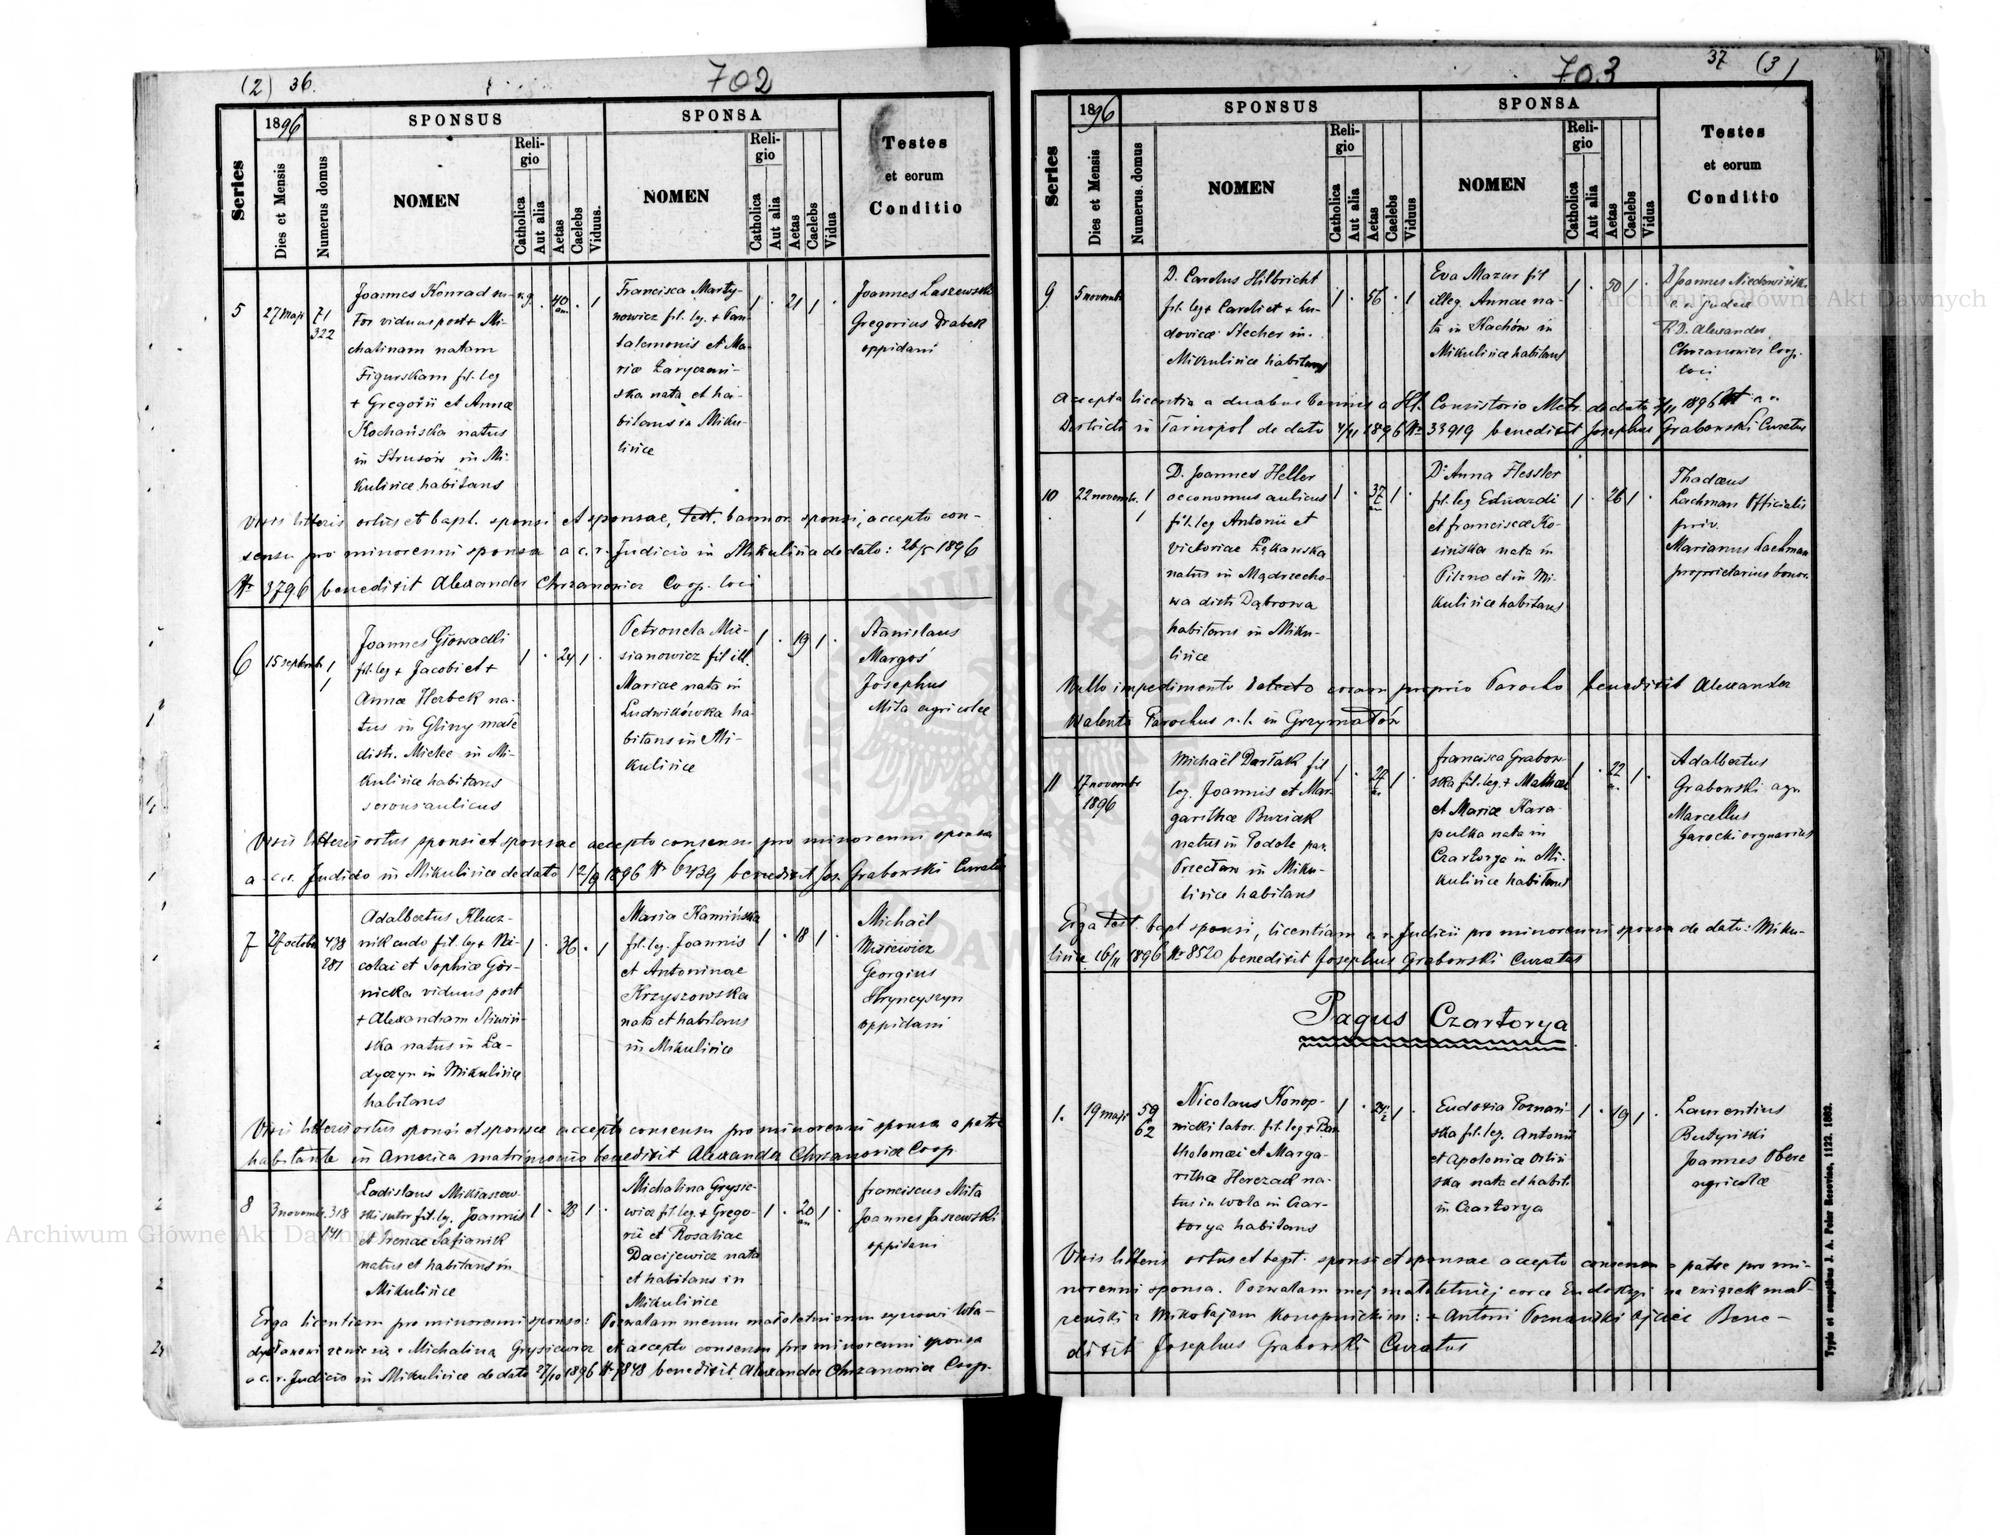 (2) 36.
702
1896
SPONSUS
SPONSA
Series
Dies et Mensis
Numerus domus
NOMEN
Religio
Catholica
Aut alia
Aetas
Caelebs
Viduus.
NOMEN
Religio
Catholica
Aut alia
Aetas
Caelebs
Vidua
Testes
et eorum
Conditio
5
27 maji
71
322
Joannes Konrad su-
tor viduus post + Mi-
chalinam natam
Figurskam fil. leg
+ Gregorii et Annae
Kochańska natus
in Strusów in Mi-
kulińce habitans
r.g. · 40 · 1
Francisca Marty-
nowicz fil. leg. + Pan-
talemonis et Ma-
riae Zaryczań-
ska nata et ha-
bitans in Miku-
lińce
1 · 21 1
Joannes Laszewski
Gregorius Drabek
oppidani
Visis litteris ortus et bapt. sponsi et sponsae, test. bannor. sponsi, accepto con-
sensu pro minorenni sponsa a c. r. Judicio in Mikulińce de dato: 26/5 1896
Nr 3796 benedixit Alexander Chrzanowicz Coop. loci
6
15 septemb
1
1
Joannes Głowacki
fil. leg + Jacobi et +
Annae Herbek na-
tus in Gliny małe
distr. Mielec in Mi-
kulińce habitans
servus aulicus
1 · 24 1 ·
Petronela Mie-
sianowicz fil ill.
Mariae nata in
Ludwikówka ha-
bitans in Mi-
kulińce
1 · 19 1 ·
Stanislaus
Margoś
Josephus
Mita agricolae
Visis litteris ortus sponsi et sponsae accepto consensu pro minorenni sponsa
a c. r. Judicio in Mikulińce de dato 12/9 1896 Nr 6439 benedixit Jos. Grabowski Curatus
7
27 octobr
438
281
Adalbertus Klucz-
nik cudo fil. leg + Ni-
colai et Sophiae Gór-
nicka viduus post
+ Alexandram Śliwiń-
ska natus in Ła-
dyczyn in Mikulińce
habitans
1 · 36 · 1
Maria Kamińska
fil. leg. Joannis
et Antoninae
Krzyszowska
nata et habitans
in Mikulińce
1 · 18 1 ·
Michaël
Georgius
Hryncyszyn
oppidani
Visis litteris ortus sponsi et sponsae accepto consensu pro minorenni sponsa a patre
habitante in America matrimonio benedixit Alexander Chrzanowicz Coop.
8
3 novemb.
318
141
Ladislaus Mikłaszew-
ski sutor fil. leg. Joannis
et Irenae Safianik
natus et habitans in
Mikulińce
1 · 23 1 ·
Michalina Grysie-
wicz fil. leg. + Grego-
rii et Rosaliae
Dacijewicz nata
et habitans in
Mikulińce
1 · 20 1 ·
Franciscus Mita
Joannes Jaszewski
oppidani
Erga licentiam pro minorenni sponso: Pozwalam memu małoletniemu synowi Wła-
dysławowi żenić się z Michaliną Grysiewicz et accepto consensu pro minorenni sponsa
a c. r. Judicio in Mikulińce de dato 27/10 1896 Nr 7848 benedixit Alexander Chrzanowicz Coop.
703
37 (3)
1896
SPONSUS
SPONSA
Series
Dies et Mensis
Numerus domus
NOMEN
Religio
Catholica
Aut alia
Aetas
Caelebs
Viduus
NOMEN
Religio
Catholica
Aut alia
Aetas
Caelebs
Vidua
Testes
et eorum
Conditio
9
5 novemb
D. Carolus Hilbricht
fil. leg + Caroli et + Lu-
dovicae Stecher in
Mikulińce habitans
1 · 56 · 1
Eva Mazur fil
illeg. Annae na-
ta in Kachów in
Mikulińce habitans
1 · 50 1 ·
D Joannes Niedźwiński
c. r. judex
R. D. Alexander
Chrzanowicz Coop.
loci
Accepta licentia a duabus bannis a Consistorio Metr. de dato 3/11 1896
Districtu in Tarnopol de dato 4/11 1896 Nr 33919 benedixit Josephus Grabowski Curatus
10
22 novemb.
1
1
D. Joannes Heller
oeconomus aulicus
fil. leg Antonii et
Victoriae Łąkawska
natus in Mądrzecho-
wa distr. Dąbrowa
habitans in Miku-
lińce
1 · 37 1 ·
Dª Anna Hessler
fil. leg Eduardi
et Franciscae Ko-
sińska nata in
Pilzno et in Mi-
kulińce habitans
1 · 26 1 ·
Thadaeus
Lachman officialis
priv.
Marianus Lachman
proprietarius bonor.
Nullo impedimento detecto coram proprio Parocho benedixit Alexander
Walenta Parochus r. l. in Grzymałów
11
17 novembr
1896
Michaël Durlak fil
leg. Joannis et Mar-
garithae Buziak
natus in Podole par.
Przecław in Miku-
lińce habitans
1 · 27 1 ·
Francisca Grabow-
ska fil. leg. + Mathaei
et Mariae Kara-
pulka nata in
Czartorya in Mi-
kulińce habitans
1 · 22 1 ·
Adalbertus
Grabowski agr.
Marcellus
Jarocki orgnarius
Erga test. bapt sponsi, licentiam c. r. Judicii pro minorenni sponsa de dato: Miku-
lińce 16/11 1896 Nr 8520 benedixit Josephus Grabowski Curatus
Pagus Czartorya
1.
19 maji
59
62
Nicolaus Konop-
nicki labor. fil. leg + Bar-
tholomaei et Marga-
rithae Herczad na-
tus in Wola in Czar-
torya habitans
1 · 24 1 ·
Eudoxia Poznań-
ska fil. leg. Antonii
et Apoloniae Orliń-
ska nata et habit.
in Czartorya
1 · 19 1 ·
Laurentius
Butyński
Joannes Obere
agricolae
Visis litteris ortus et bapt. sponsi et sponsae accepto consensu a patre pro mi-
norenni sponsa. Pozwalam mej małoletniej córce Eudokyi na związek mał-
żeński z Mikołajem Konopnickim: + Antoni Poznański Ojciec Bene-
dixit Josephus Grabowski Curatus
Typis et sumptibus J. A. Pelar Resoviae, 1122. 1892.
Archiwum Główne Akt Dawnych
Archiwum Główne Akt Dawnych
ARCHIWUM GŁÓWNE AKT DAWNYCH